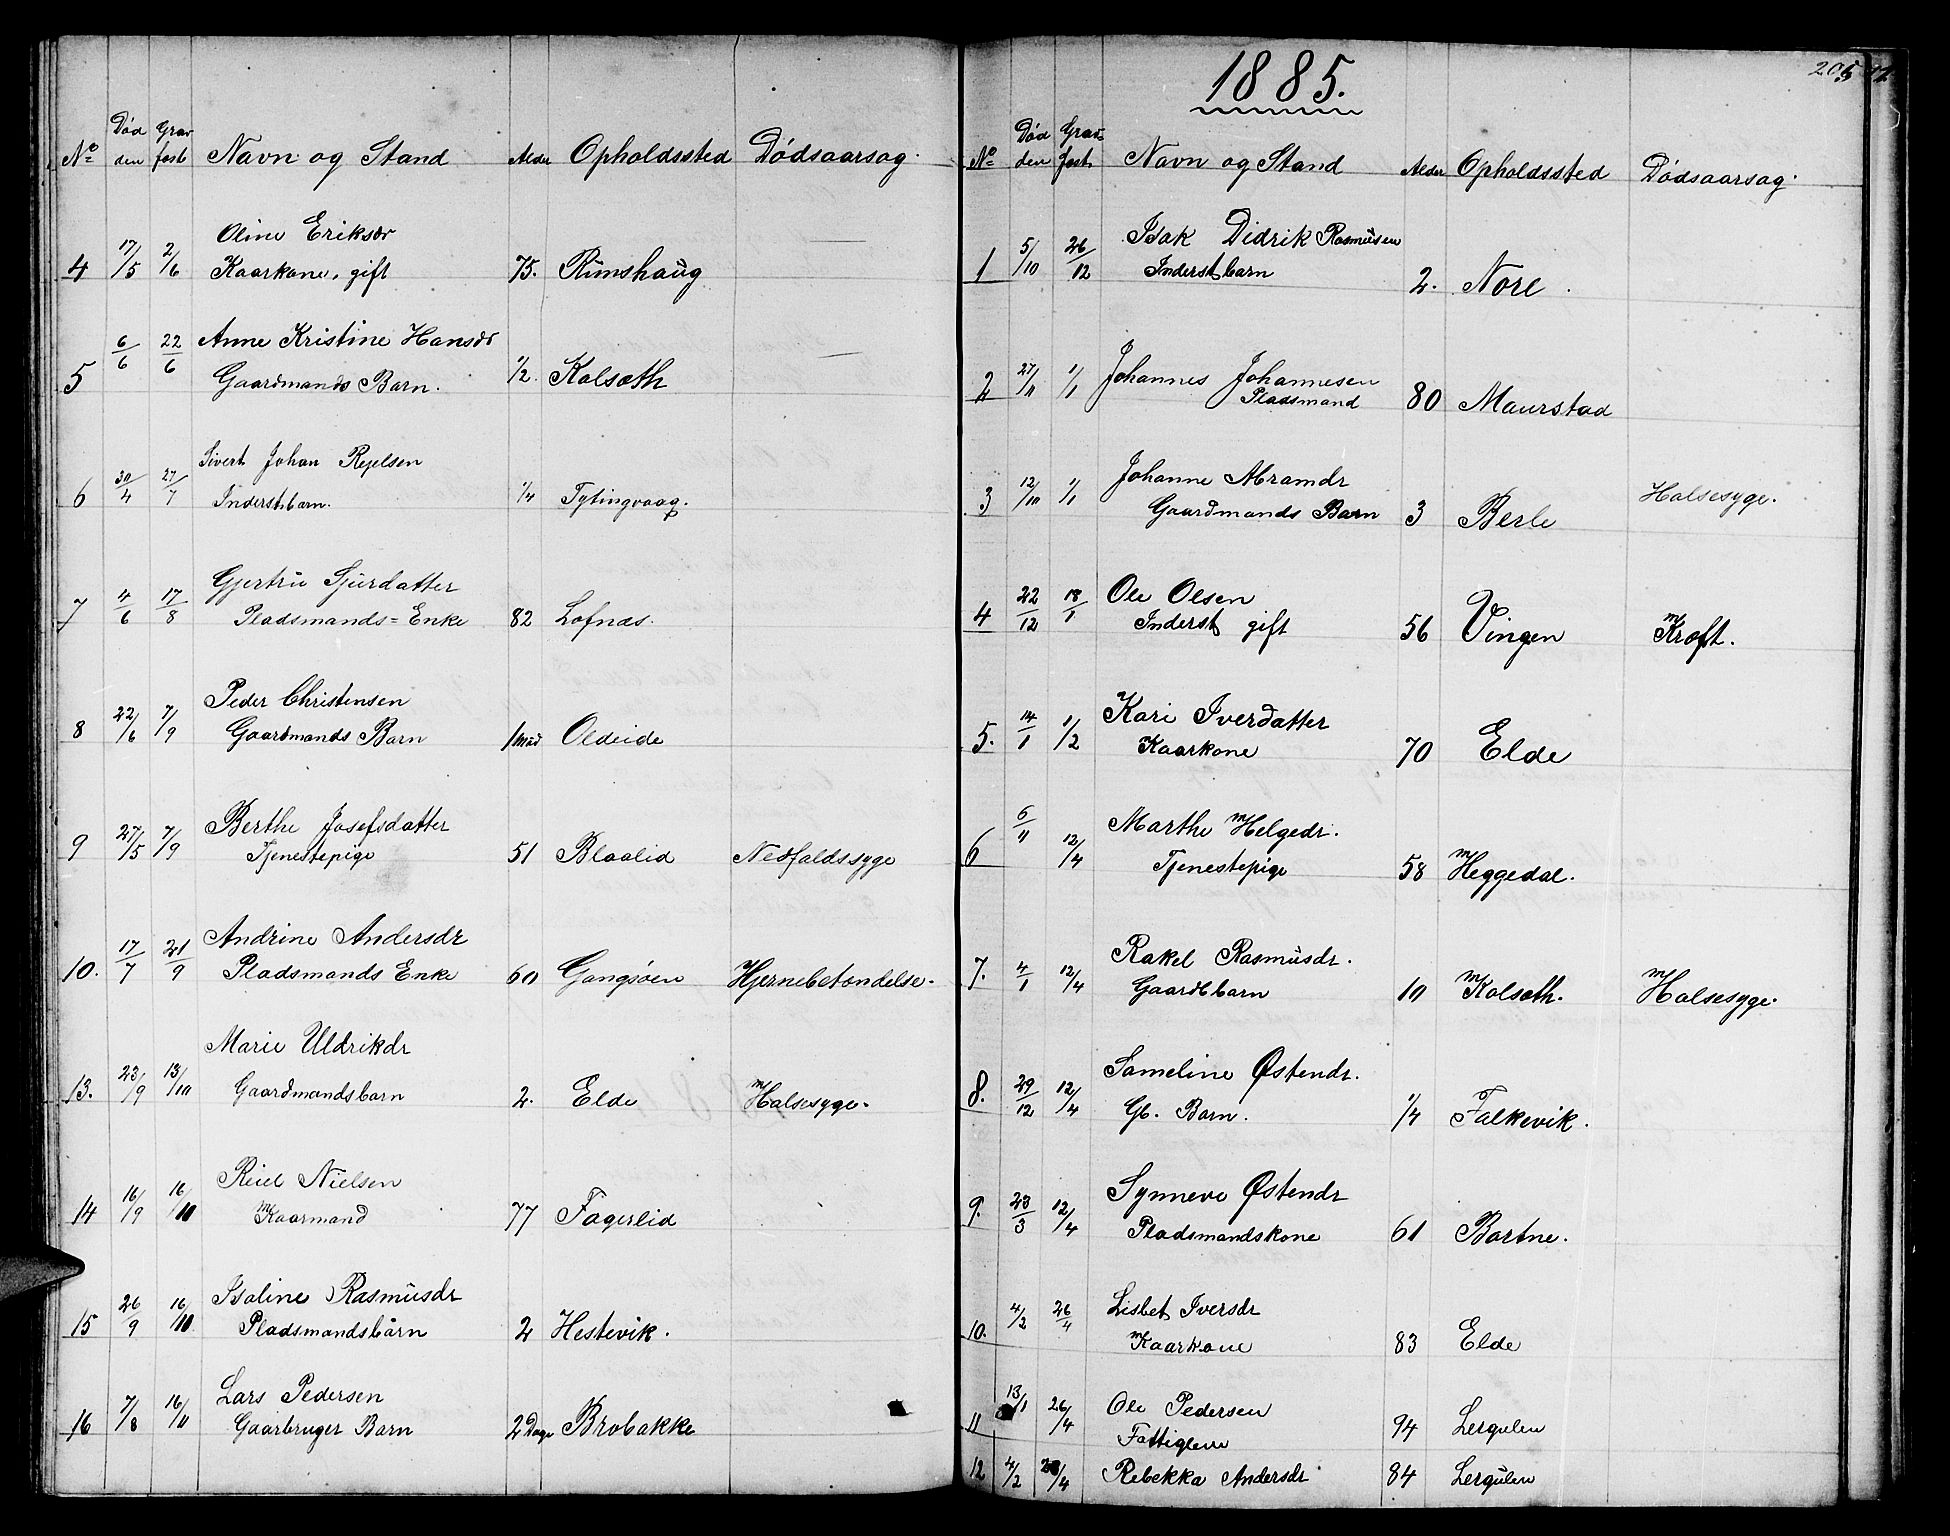 Nº Død den Gravfest Navn og Stand Alder Opholdssted Dødsaarsag.
Oline Eriksdr
4 17/5 2/6 Kaarkone, gift 75. Rimshaug
5 6/6 22/6 Anne Kristine Hansdr
Gaardmands Barn. 1/2. Kolseth
Sivert Johan
6 30/4 27/7 Inderstbarn. 1/4 Tytingvaag.
Gjertru Sjurdatter
7 4/6 17/8 Pladsmands=Enke 82 Lofnæs.
Peder Christensen
8 22/6 7/9 Gaardmands Barn 1 Oldeide
Berthe Josefsdatter
9 27/5 7/9 Tjenestepige 51 Blaalid Nedfaldssyge
Andrine Andersdr
10. 17/7 21/9 Pladsmands Enke 60 Gangsøen Hjernebetændelse.
Marie Uldrikdr
13. 23/9 13/10 Gaardmandsbarn 2. Elde Halsesyge.
Reiel Nielsen
14 16/9 16/10 Kaarmand 77 Fagerlid
Isaline Rasmusdr
15 26/9 16/10 Pladsmandsbarn 2 Hestevik.
Lars Pedersen
16 7/8 16/11 Gaarbruger Barn 2 Dage Brobakke
1885.
205
Nº Død den Gravfest Navn og Stand Alder Opholdssted Dødsaarsag.
Isak Didrik Rasmusen
1 5/10 26/12 Inderstbarn 2. Nore.
2 27/11 1/1 Johannes Johannesen
Pladsmand 80 Maurstad
Johanne Abramdr
3 12/10 1/1 Gaardmands Barn 3 Berle Halsesyge.
Ole Olsen
4 22/12 18/1 Inderst gift 56 Vingen Kræft.
Kari Iverdatter
5. 14/1 1/2 Kaarkone 70 Elde
Marthe Helgedr.
6 6/11 12/4 Tjenestepige 58 Heggedal.
Rakel Rasmusdr.
7. 4/1 12/4 Gaardbbarn 10 Kolseth. Halsesyge.
Sameline Østendr.
8. 29/12 12/4 Gb. Barn. 1/4 Falkevik.
Synneve Østendr
9. 23/3 12/4 Pladsmandskone 61 Bortne.
Lisbet Iversdr
10. 4/2 26/4 Kaarkone 83 Elde
11 13/1 26/4 Ole Pedersen 94 Lergulen
Fattiglem
12 4/2 /4 Rebekka Andersdr 84 Lergulen